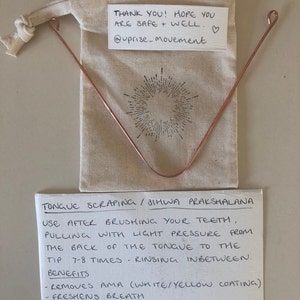 THANK YOU! HOPE YOU
ARE SAFE + WELL
@uprise_movement
TONGUE SCRAPING / JIHWA PRAKSHALANA
USE AFTER BRUSHING YOUR TEETH,
PULLING WITH LIGHT PRESSURE FROM
THE BACK OF THE TONGUE TO THE
TIP 7-8 TIMES - RINSING INBETWEEN.
BENEFITS
- REMOVES AMA (WHITE/YELLOW COATING)
- FRESHENS BREATH